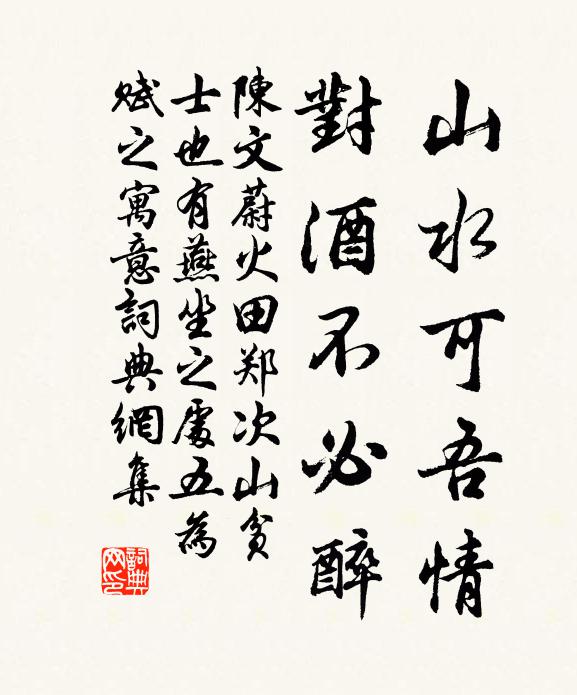 山水可吾情
對酒不必醉
陳文蔚火田郑次山貧
士也有燕坐之處五為
賦之寓意詞典網集
詞典网印